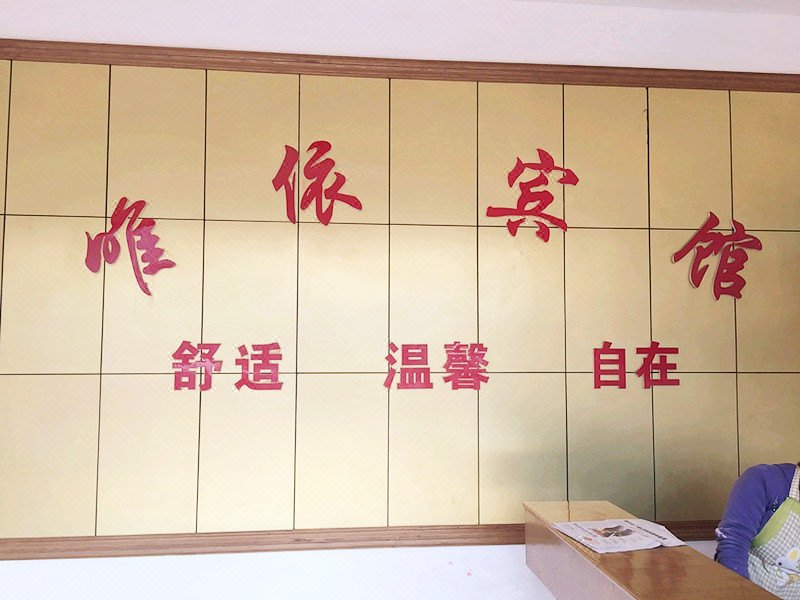 唯依宾馆
舒适 温馨 自在